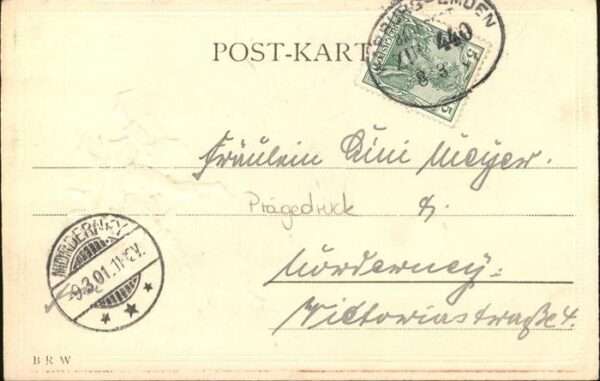 POST-KARTE
EMDEN
ZUG 440
8 3
5
Fräulein Tini Meyer.
Prägedruck
Norderney.
Victoriastraße 4.
NORDERNEY
9.3.01.11-12V.
* * *
B R W